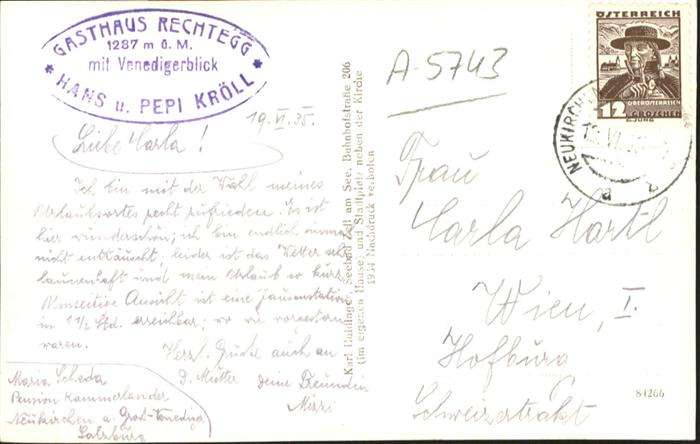 GASTHAUS RECHTEGG
1287 m ü. M.
mit Venedigerblick
* HANS u. PEPI KRÖLL *
19.VI.35.
Liebe Carla!
Ich bin mit der Wahl meines
Urlaubsortes recht zufrieden. Es ist
hier wunderschön; ich bin endlich einmal
nicht enttäuscht, leider ist das Wetter sehr
launenhaft und mein Urlaub so kurz.
Ansicht ist eine Jausenstation
in 1 1/2 Std. erreichbar, wo wir vorgestern
waren.
Herzl. Grüße auch an
d. Mutter deine Freundin
Mizzi
Maria Scheda
Pension Kammerlander
Neukirchen a. Groß-Venediger
Salzburg
Karl Haidinger, Seebad Zell am See, Bahnhofstraße 206
(im eigenen Hause) und Stadtplatz neben der Kirche
1934 Nachdruck verboten
A-5743
ÖSTERREICH
OBERÖSTERREICH
12 GROSCHEN
NEUKIRCHEN
a
Frau
Carla Hartl
Wien, I.
Hofburg
Schweizertrakt
84266